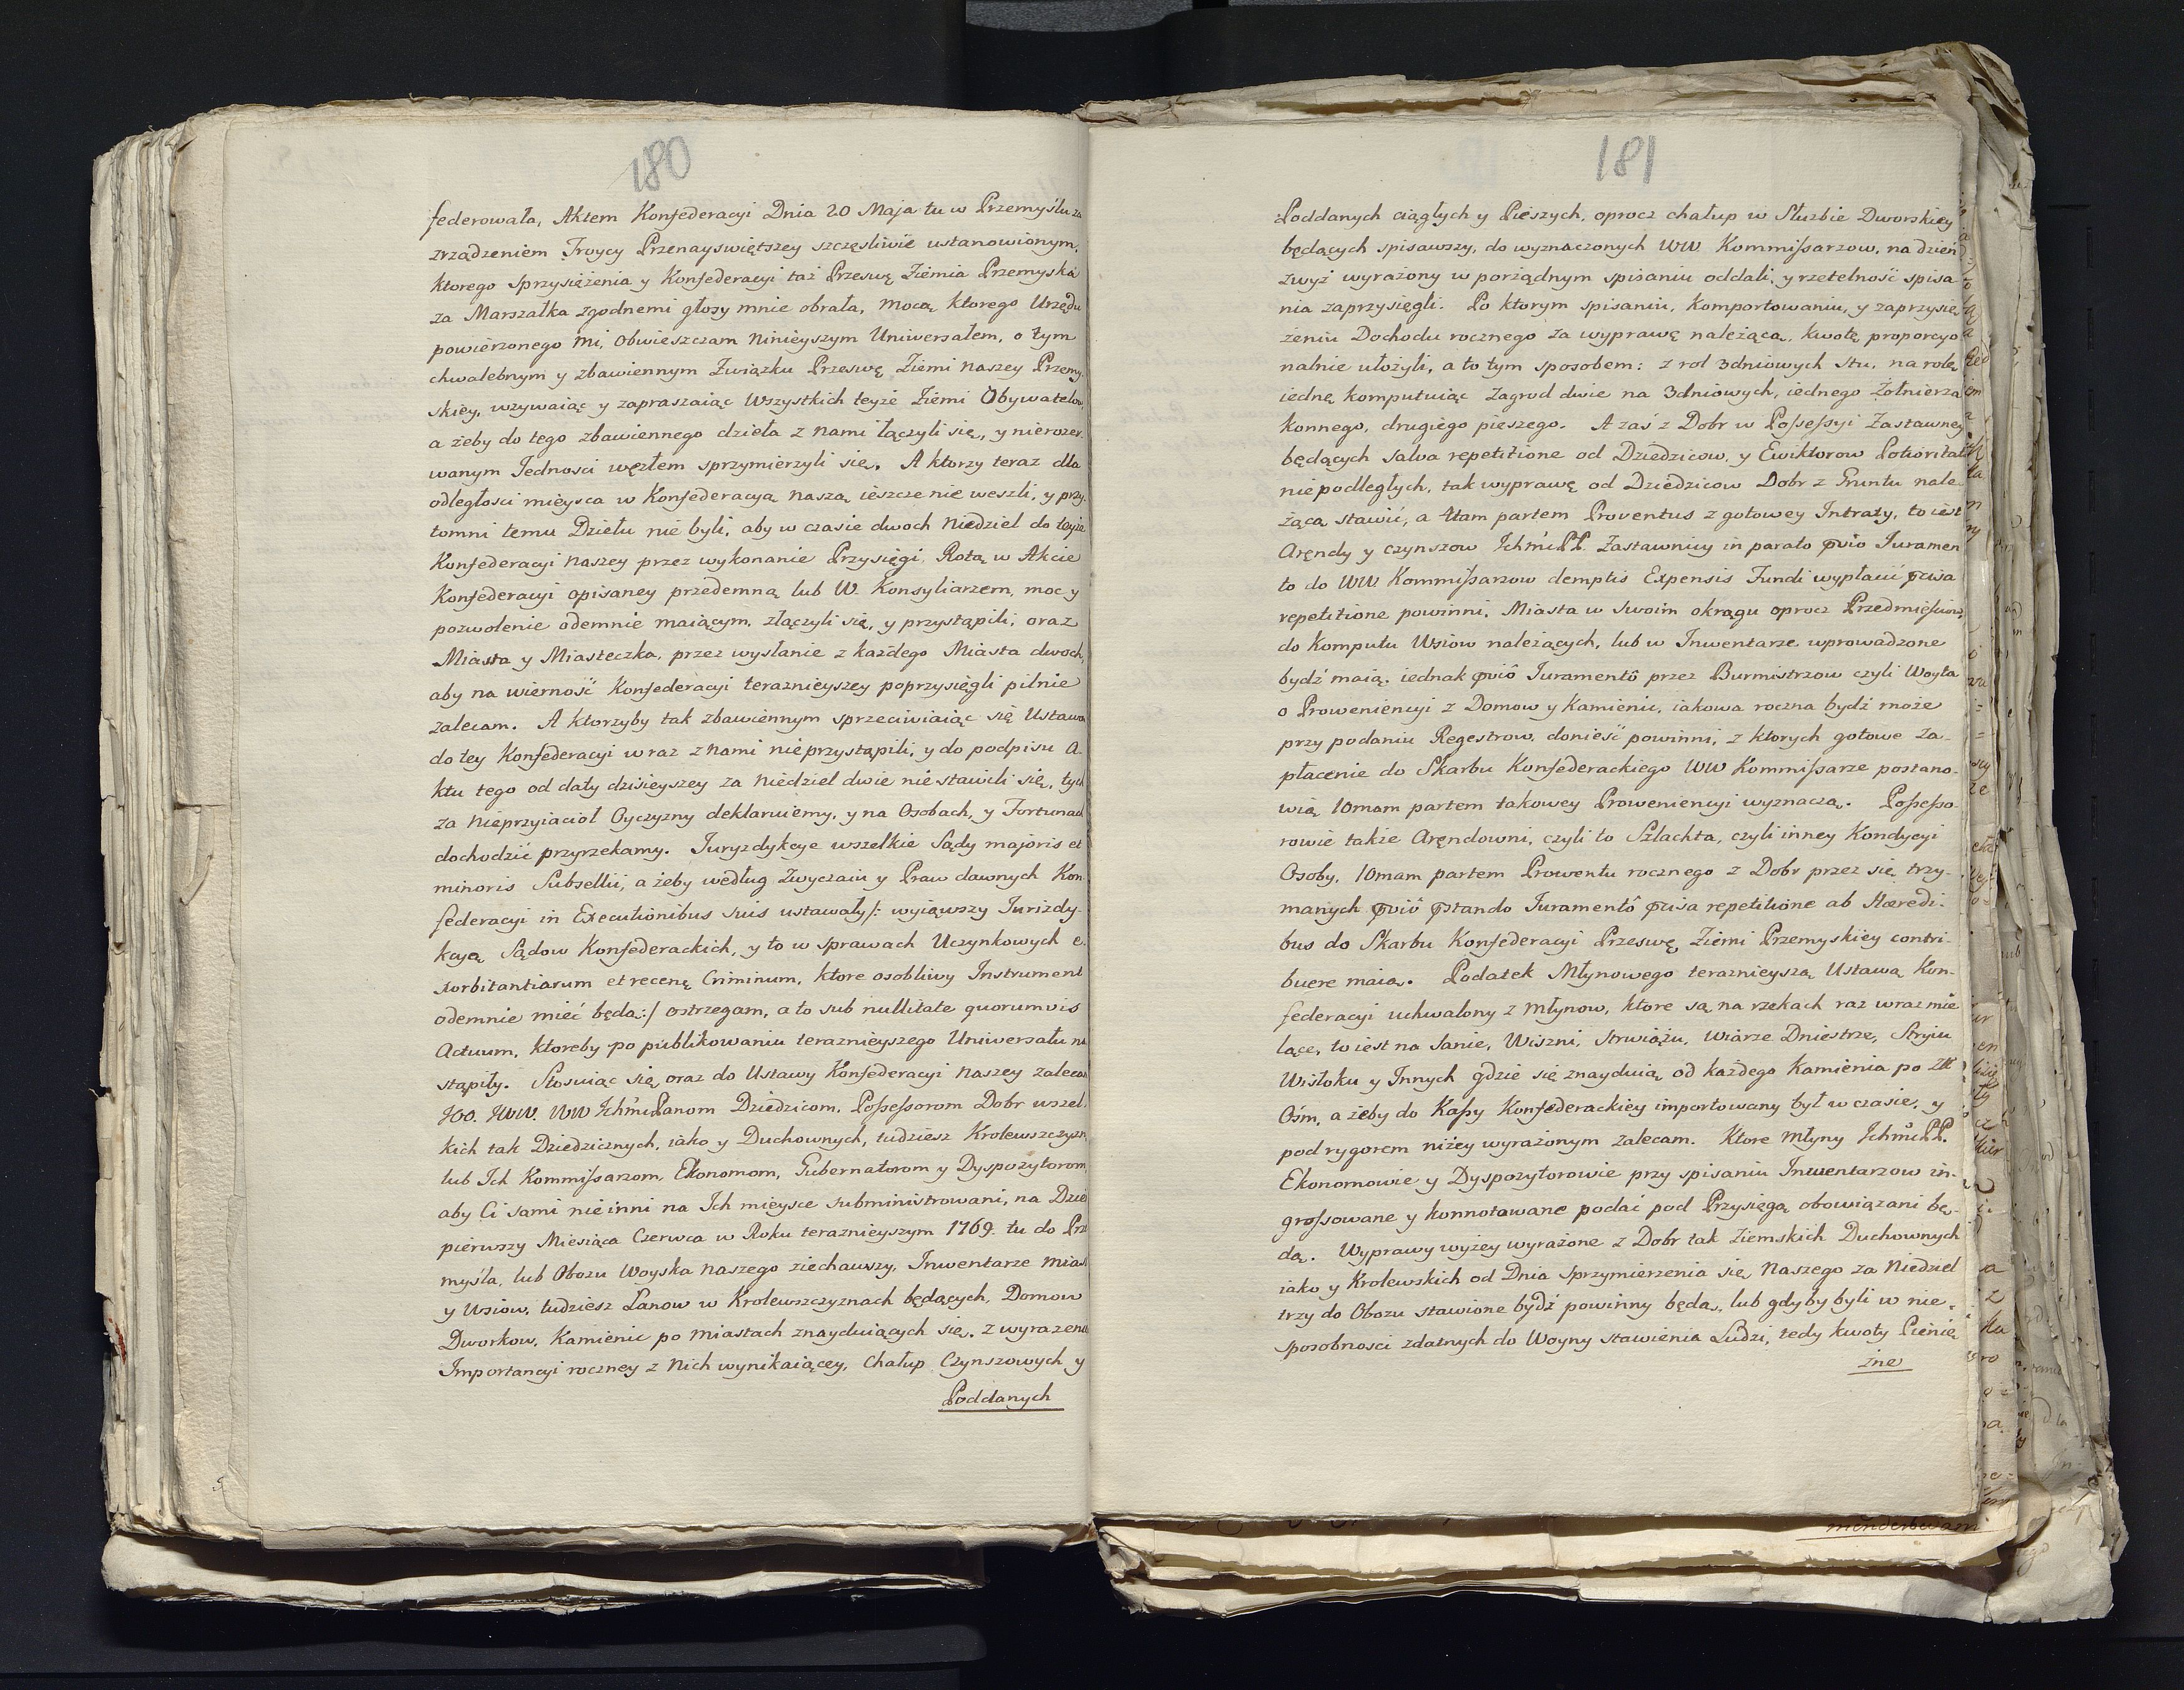 180
federowała, Aktem Konfederacyi Dnia 20 Maja tu w Przemyślu za
zrządzeniem Troycy Przenayświętszey szczęśliwie ustanowionym,
ktorego sprzysiężenia y Konfederacyi taż Przeswę Ziemia Przemyska
za Marszałka zgodnemi głosy mnie obrała, mocą ktorego Urzędu
powierzonego mi, obwieszczam ninieyszym Uniwersałem, o tym
chwalebnym y zbawiennym Związku Przeswę Ziemi naszey Przemy
skiey, wzywaiąc y zapraszaiąc Wszystkich teyże Ziemi Obywatelow,
a żeby do tego zbawiennego dzieła z nami łączyli się, y nierozer-
wanym Jednosci węzłem sprzymierzyli się. A ktorzy teraz dla
odległosci mieysca w Konfederacyą naszą ieszcze nie weszli, y przy-
tomni temu Dziełu nie byli, aby w czasie dwoch Niedziel do teyże
Konfederacyi naszey przez wykonanie Przysięgi Rotą w Akcie
Konfederacyi opisaney przedemną lub W. Konsyliarzem, moc y
pozwolenie odemnie maiącym, złączyli się, y przystąpili, oraz
Miasta y Miasteczka, przez wysłanie z każdego Miasta dwoch,
aby na wierność Konfederacyi teraznieyszey poprzysięgli pilnie
zalecam. A ktorzyby tak zbawiennym sprzeciwiaiąc się Ustawom
do tey Konfederacyi wraz z nami nieprzystąpili, y do podpisu A-
ktu tego od daty dzisieyszey za Niedziel dwie nie stawili się, tych
za Nieprzyiacioł Oyczyzny deklaruiemy, y na Osobach, y Fortunach
dochodzić przyrzekamy. Juryzdykcye wszelkie Sądy majoris et
minoris Subsellii, a żeby według Zwyczaiu y Praw dawnych Kon-
federacyi in Executionibus suis ustawały /: wyiąwszy Jurizdy-
kcyą Sądow Konfederackich, y to w sprawach Uczynkowych e-
xorbitantiarum et recenę Criminum, ktore osobliwy Instrument
odemnie mieć będą :/ ostrzegam, a to sub nullitate quorumvis
Actuum, ktoreby po publikowaniu teraznieyszego Uniwersału na
stąpiły. Stosuiąc się oraz do Ustawy Konfederacyi naszey zalecam
JOO. JWW. WW Ichmć Panom Dziedzicom, Possessorom Dobr wszel-
kich tak Dziedzicznych, iako y Duchownych, tudziesz Krolewszczyzn,
lub Ich Kommissarzom, Ekonomom, Gubernatorom y Dyspozytorom,
aby Ci sami nie inni na Ich mieysce subministrowani, na Dzień
pierwszy Miesiąca Czerwca w Roku teraznieyszym 1769. tu do Prze
myśla, lub Obozu Woyska naszego ziechawszy, Inwentarze miast
y Wsiow, tudziesz Łanow w Krolewszczyznach będących, Domow
Dworkow, Kamienic po miastach znayduiących się, z wyrażeniem
Importancyi roczney z Nich wynikaiącey, Chałup Czynszowych y
Poddanych
181
Poddanych ciągłych y Pieszych, oprocz chałup w Służbie Dworskiey
będących spisawszy, do wyznaczonych WW Kommissarzow, na dzień
zwyż wyrażony w porządnym spisaniu oddali, y rzetelność spisa
nia zaprzysięgli. Po ktorym spisaniu, komportowaniu, y zaprzysię-
żeniu Dochodu rocznego za wyprawę należącą, kwotę proporcyo
nalnie ułożyli, a to tym sposobem: z rol 3dniowych stu, na rolę
iednę komputuiąc zagrod dwie na 3dniowych, iednego Żołnierza
konnego, drugiego pieszego. A zaś z Dobr w Possessyi Zastawney
będących salva repetitione od Dziedzicow, y Ewiktorow Potioritati
niepodległych, tak wyprawę od Dziedzicow Dobr z Gruntu nale
żącą stawić, a 4tam partem Proventus z gotowey Intraty, to iest
Arędy y czynszow Ichmć PP. Zastawnicy in parato pvio Juramen
to do WW Kommissarzow demptis Expensis Fundi wypłacić pvisa
repetitione powinni. Miasta w swoim okrągu oprocz Przedmieściow,
do komputu Wsiow należących, lub w Inwentarze wprowadzone
bydź maią, iednak pviô Juramentô przez Burmistrzow czyli Woyta
o Proweniencyi z Domow y Kamienic, iakowa roczna bydź może
przy podaniu Regestrow, donieść powinni, z ktorych gotowe za-
płacenie do Skarbu Konfederackiego WW Kommissarze postano-
wią 10mam partem takowey Prowenencyi wyznaczą. Possesso-
rowie także Arędowni, czyli to Szlachta, czyli inney Kondycyi
Osoby, 10mam partem Prowentu rocznego z Dobr przez się trzy-
manych pviô pstando Juramentô pvisa repetitione ab Hæredi-
bus do Skarbu Konfederacyi Przeswę Ziemi Przemyskiey contri-
buere maią. Podatek Młynowego teraznieyszą Ustawą Kon-
federacyi uchwalony z Młynow, ktore są na rzekach raz wraz mie
lące, to iest na Sanie, Wiszni, Strwiążu, Wiarze Dniestrze, Stryiu
Wisłoku y Innych gdzie się znayduią od każdego Kamienia po Złł
Ośm, a żeby do Kassy Konfederackiey importowany był w czasie, y
pod rygorem niżey wyrażonym zalecam. Ktore Młyny Ichmć PP.
Ekonomowie y Dyspozytorowie przy spisaniu Inwentarzow in-
grossowane y konnotowane podać pod Przysięgą obowiązani bę-
dą. Wyprawy wyżey wyrażone z Dobr tak Ziemskich Duchownych
iako y Krolewskich od Dnia sprzymierzenia się Naszego za Niedziel
trzy do Obozu stawione bydź powinny będą, lub gdyby byli w nie-
sposobnosci zdatnych do Woyny stawienia Ludzi, tedy kwoty Pienię
żne